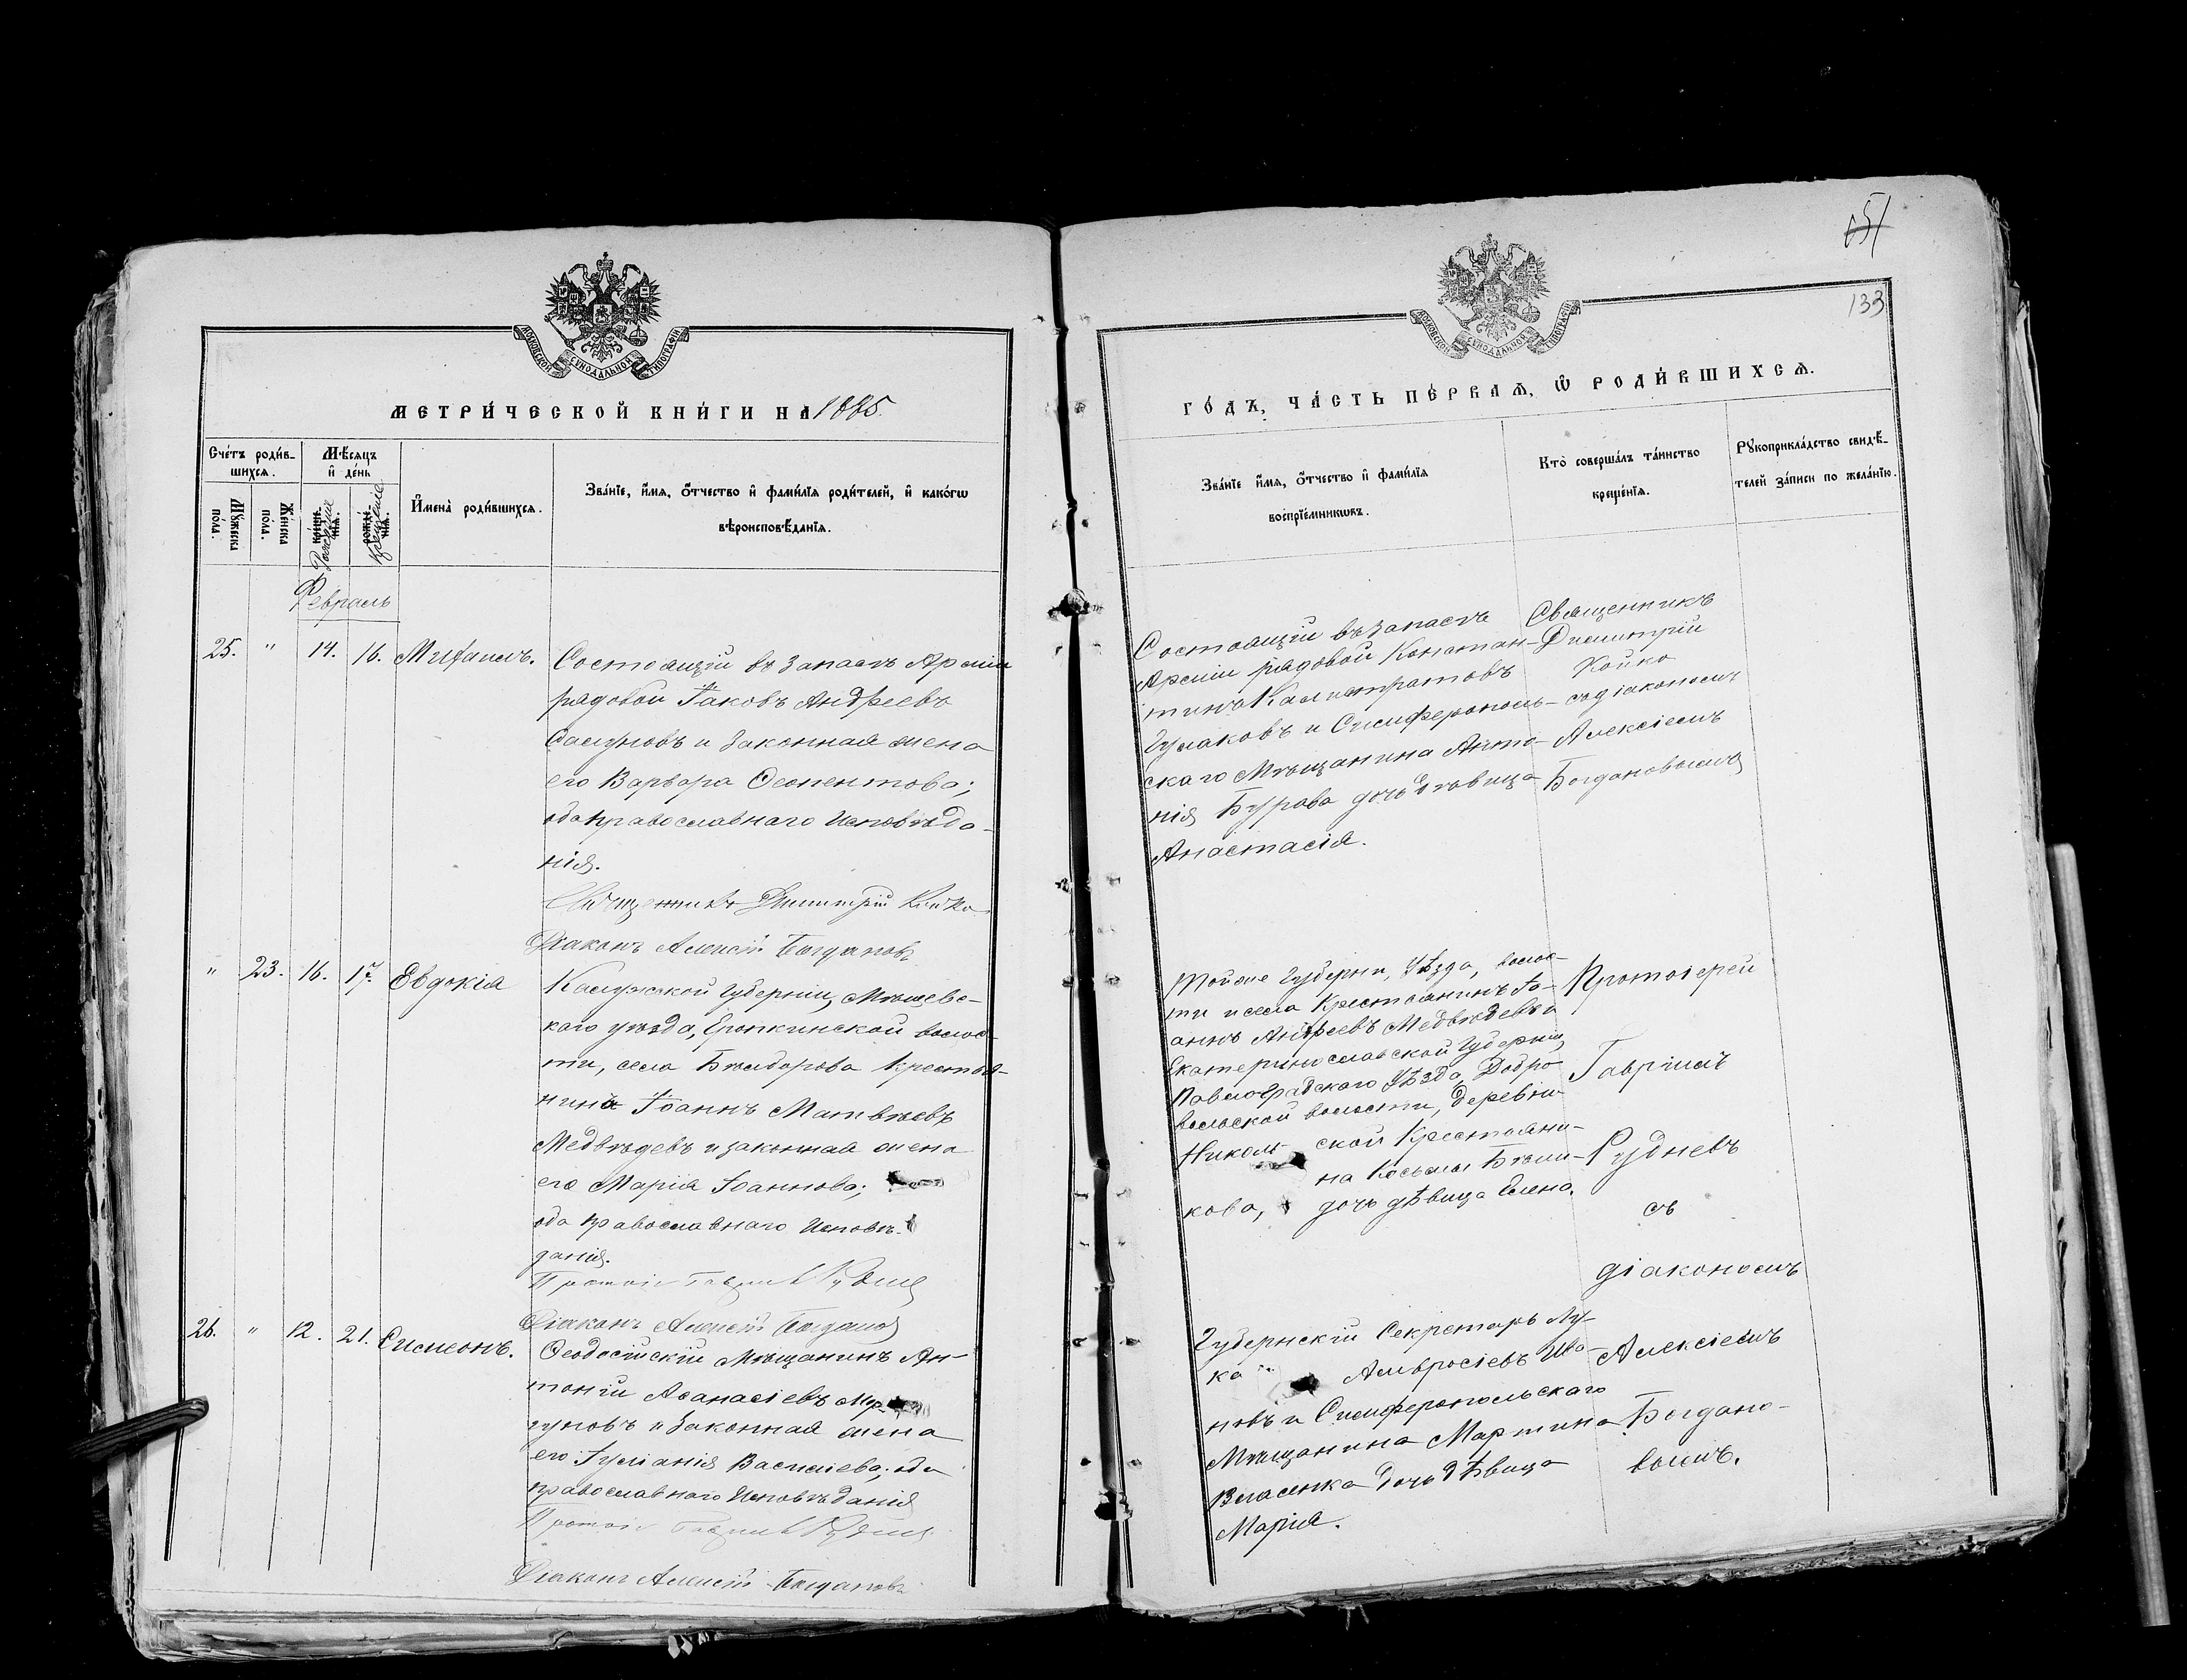 133
МОСКОВСКОЙ СѴНОДАЛЬНОЙ ТИПОГРАФІИ
МЕТРИ́ЧЕСКОЙ КНИ́ГИ НА 1885.
Сче́тъ роди́в-
шихся.
Мѣсяцъ
и҆ де́нь
Мꙋжеска
по́ла.
Женска
по́ла.
Рожденіе
Крещеніе
И҆мена̀ роди́вшихся.
Зва́нїе, и҆́мя, ѻ҆́тчество и҆ фами́лїя роди́телей, и҆ како́гѡ
вѣроисповѣ́данїя.
Февраль
25. " 14. 16. Михаилъ.
Состоящій въ запасѣ Арміи
рядовой Іаковъ Андреевъ
и законная жена
его Варвара
оба православнаго Исповѣда-
нія.
Священникъ Димитрій Койко
Діаконъ Алексій Богдановъ
" 23. 16. 17. Евдокія
Калужской Губерніи, Мещовс-
каго уѣзда, Еропкинской волос-
ти, села Крестья-
нинъ Іоаннъ Матвѣевъ
Медвѣдевъ и законная жена
его Марія Іоаннова;
оба православнаго Исповѣ-
данія.
Протоіе Гавріилъ Рудневъ
Діаконъ Алексій Богдановъ
26. " 12. 21. Симеонъ.
Ѳеодосійскій Мѣщанинъ Ан-
тоній Аѳанасіевъ
гуновъ и законная жена
его Іуліанія Васильева; оба
православнаго Исповѣданія
Протоіе Гавріилъ Рудневъ
Діаконъ Алексій Богдановъ
МОСКОВСКОЙ СѴНОДАЛЬНОЙ ТИПОГРАФІИ
ГО́ДЪ, ЧА́СТЬ ПЕ́РВАѦ, Ѡ҆ РОДИ́ВШИХСѦ.
Зва́нїе и҆́мя, ѻ҆́тчество и҆ фами́лїя
воспрїе́мникѡвъ.
Кто̀ соверша́лъ та́инство
креще́нїя.
Рꙋкоприкла́дство свидѣ́-
телей за́писи по жела́нїю.
Состоящій въ запасѣ
Арміи рядовой Констан-
тинъ Калистратовъ
Гулаковъ и Симферополь-
скаго Мѣщанина Анто-
нія Бурова дочь дѣвица
Анастасія.
Священникъ
Димитрій
Койко
съ діакономъ
Алексіемъ
Богдановымъ
Тойже Губерніи, Уѣзда, волос-
ти и села Крестьянинъ Іо-
аннъ Андреевъ Медвѣдевъ и
Екатеринославской Губерніи,
Павлоградскаго Уѣзда, Добро-
вольской волости, деревни
Николь- ской Крестьяни-
на Косьмы Бѣли-
кова, дочь дѣвица Елена.
Протоіерей
Гавріилъ
Рудневъ
съ
діакономъ
Алексіемъ
Богдано-
вымъ.
Губернскій Секретарь Лу-
ка Амвросіевъ Ива-
новъ и Симферопольскаго
Мѣщанина Мартина
Власенка дочь дѣвица
Марія.